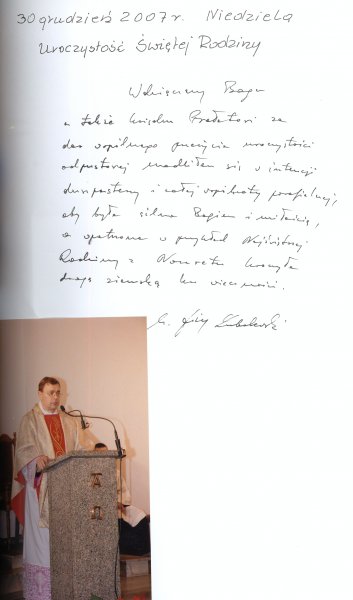 30 grudzień 2007 r. Niedziela
Uroczystość Świętej Rodziny
Wdzięczny Bogu
a także Księdzu Prałatowi za
dar wspólnego przeżycia uroczystości
odpustowej modliłem się w intencji
duszpasterzy i całej wspólnoty parafialnej,
aby była silna Bogiem i miłością,
a zapatrzona w przykład Najświętszej
Rodziny z Nazaretu kroczyła
drogą ziemską ku wieczności.
ks. Jerzy
A Ω